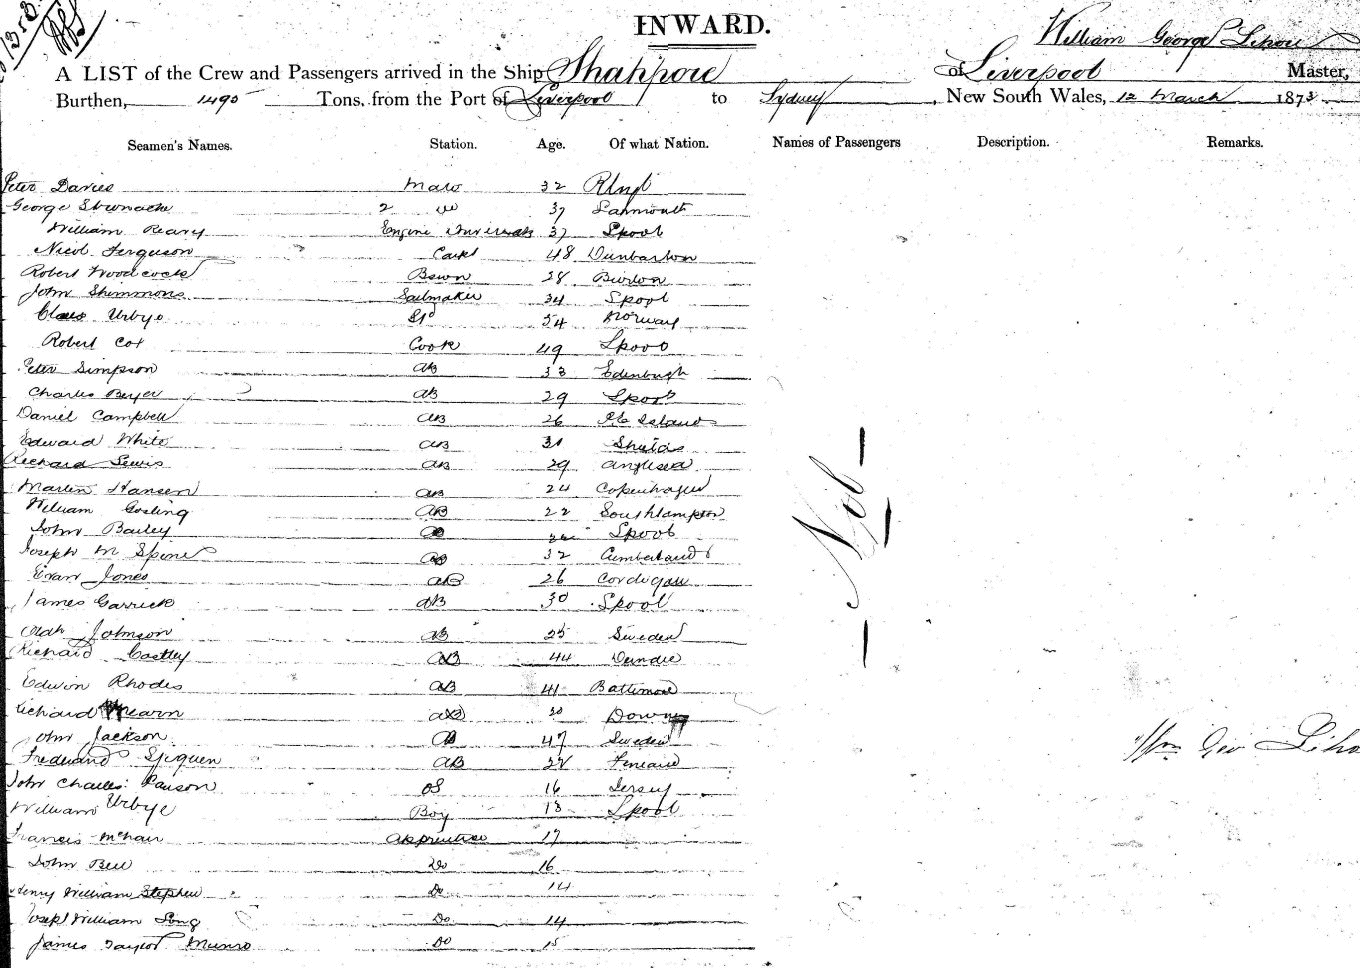 INWARD.
William George
A LIST of the Crew and Passengers arrived in the Ship Shahpore of Liverpool Master,
Burthen, 1490 Tons, from the Port of Liverpool to Sydney, New South Wales, 12 March 1873
Seamen's Names. Station. Age. Of what Nation. Names of Passengers Description. Remarks.
Peter Davies Mate 32 Rhyl
George 2 37
William Reavy Engine 37 Lpool
Nicol Ferguson Carp 48 Dunbarton
Robert Woodcock Bswn 28
John Shimmons Sailmaker 34 Lpool
Claus Urbye Std 54 Norway
Robert Cox Cook 49 Lpool
Peter Simpson AB 33 Edenburgh
Charles Beyer AB 29 Lpool
Daniel Campbell AB 26 Islands
Edward White AB 31 Shields
Richard Lewis AB 29 Anglesea
Martin Hansen AB 24 Copenhagen
William Gosling AB 22 Southampton
John Bailey AB Lpool
Joseph M AB 32 Cumberland
Evan Jones AB 26 Cardigan
James Garrick AB 30 Lpool
Johnson AB 25 Sweden
Richard Costley AB 44 Dundee
Edwin Rhodes AB 41 Baltimore
Richard AB 20 Down
John Jackson AB 47 Sweden
AB 22
John Charles OS 16 Jersey
William Urbye Boy 18 Lpool
Francis McNair Apprentice 17
John Bell Do 16
Henry William Stephen Do 14
Joseph William Long Do 14
James Taylor Munro Do 15
— Nil —
Wm Geo